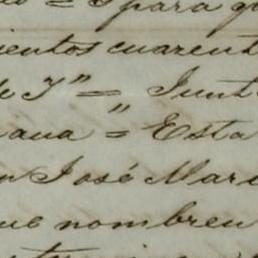 para q
ientos cuarent
de Yⁿ = Junt
aua = Esta
n José Mari
ue nombreu